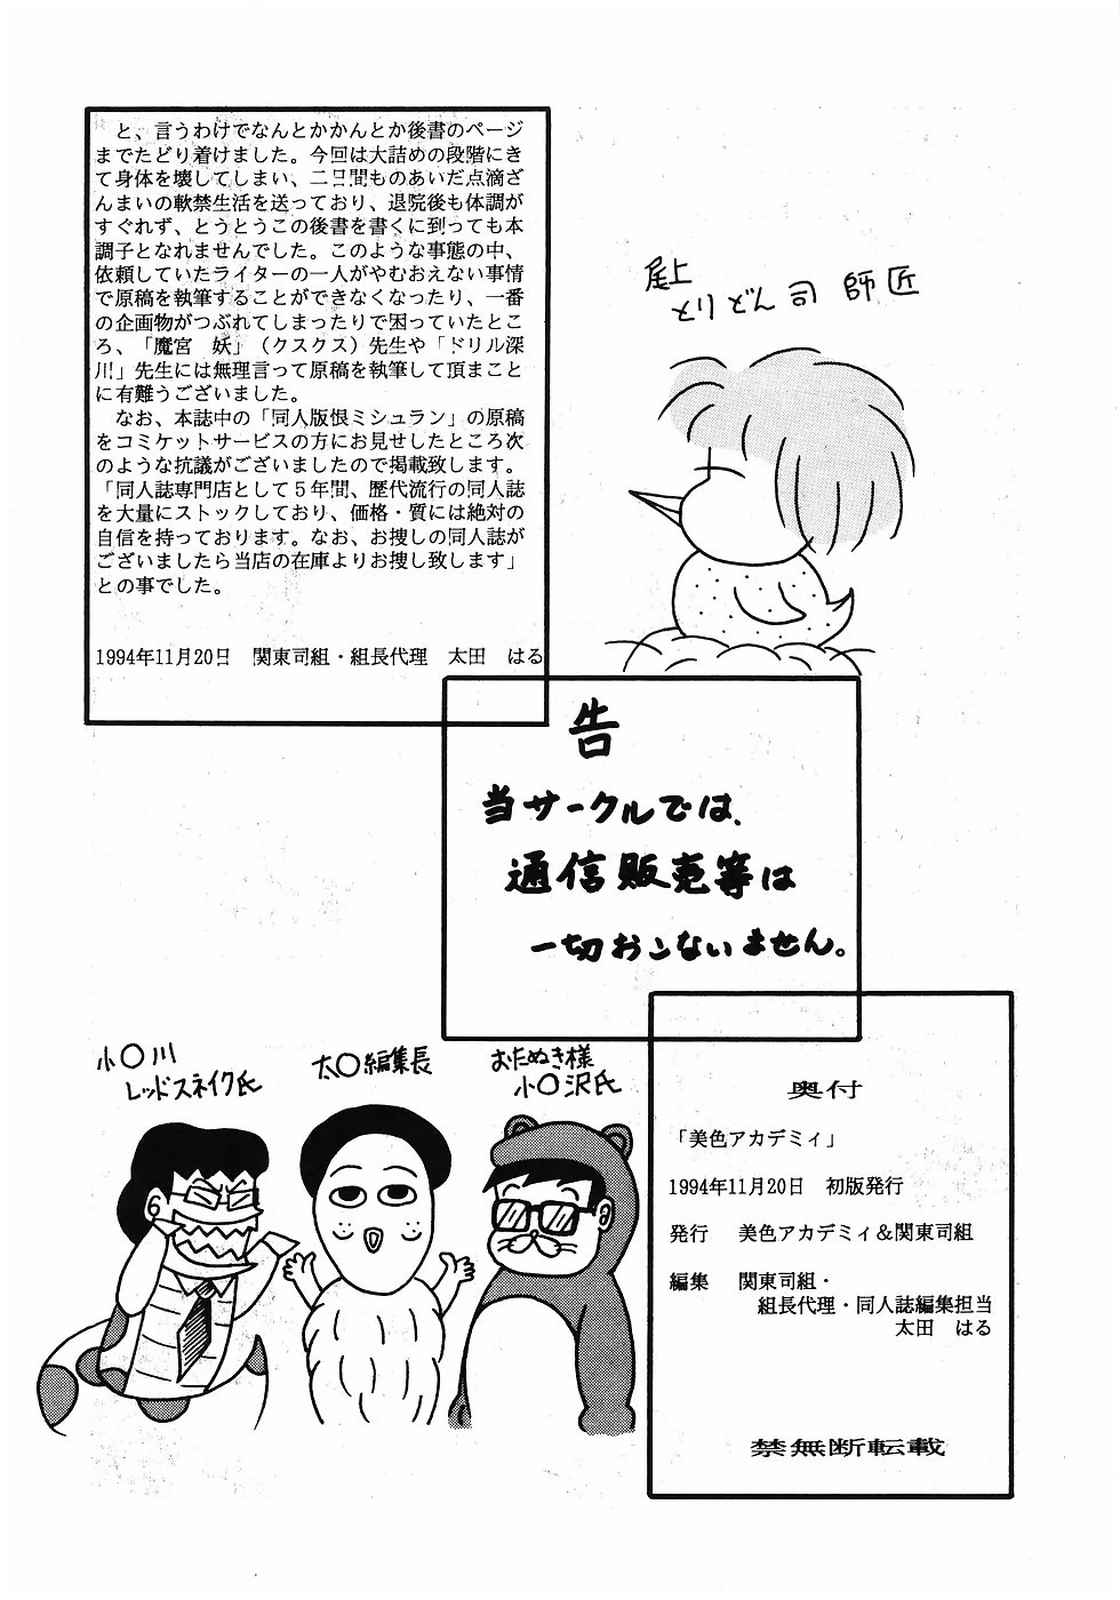 と、言うわけでなんとかかんとか後書のページ
までたどり着けました。今回は大詰めの段階にき
て身体を壊してしまい、二日間ものあいだ点滴ざ
んまいの軟禁生活を送っており、退院後も体調が
すぐれず、とうとうこの後書を書くに到っても本
調子となれませんでした。このような事態の中、
依頼していたライターの一人がやむおえない事情
で原稿を執筆することができなくなったり、一番
の企画物がつぶれてしまったりで困っていたとこ
ろ、「魔宮　妖」（クスクス）先生や「ドリル深
川」先生には無理言って原稿を執筆して頂まこと
に有難うございました。
　なお、本誌中の「同人版恨ミシュラン」の原稿
をコミケットサービスの方にお見せしたところ次
のような抗議がございましたので掲載致します。
「同人誌専門店として５年間、歴代流行の同人誌
を大量にストックしており、価格・質には絶対の
自信を持っております。なお、お捜しの同人誌が
ございましたら当店の在庫よりお捜し致します」
との事でした。
1994年11月20日　関東司組・組長代理　太田　はる
尾上
とりどん司 師匠
告
当サークルでは、
通信販売等は
一切おこないません。
小〇川
レッドスネイク氏
太〇編集長
おたぬき様
小〇沢氏
奥付
「美色アカデミィ」
1994年11月20日　初版発行
発行　美色アカデミィ＆関東司組
編集　関東司組・
組長代理・同人誌編集担当
太田　はる
禁無断転載